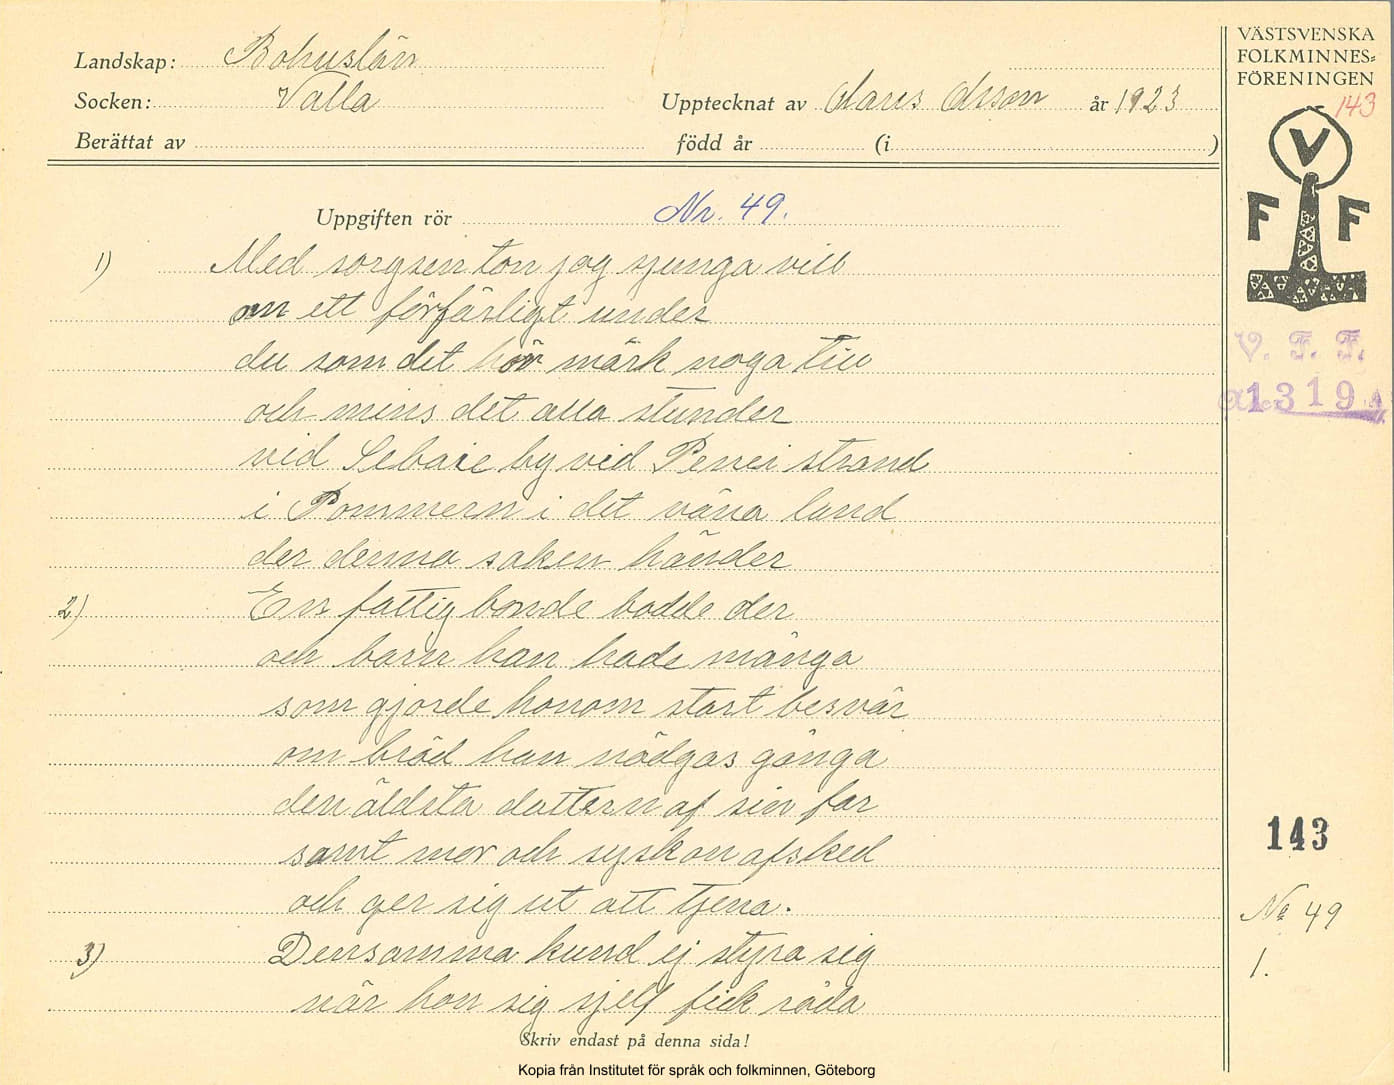 Landskap: Bohuslän
Socken: Valla
Upptecknat av Olsson år 1923
Berättat av
född år (i )
VÄSTSVENSKA
FOLKMINNES-
FÖRENINGEN
143
V
F F
V. F. F.
1319
Uppgiften rör Nr. 49.
1) Med sorgsen ton jag sjunga vill
om ett förfärligt under
du som det hör märk noga till
och mins det alla stunder
vid by vid strand
i Pommern i det våra land
der denna saken händer
2) En fattig bonde bodde der
och barn han hade många
som gjorde honom stort besvär
om bröd han nödgas gånga
den äldsta dottern af sin far
samt mor och syskon afsked
och ger sig ut att tjena.
3) Densamma kund ej styra sig
när hon sig sjelf fick råda
143
No 49
1.
Skriv endast på denna sida!
Kopia från Institutet för språk och folkminnen, Göteborg